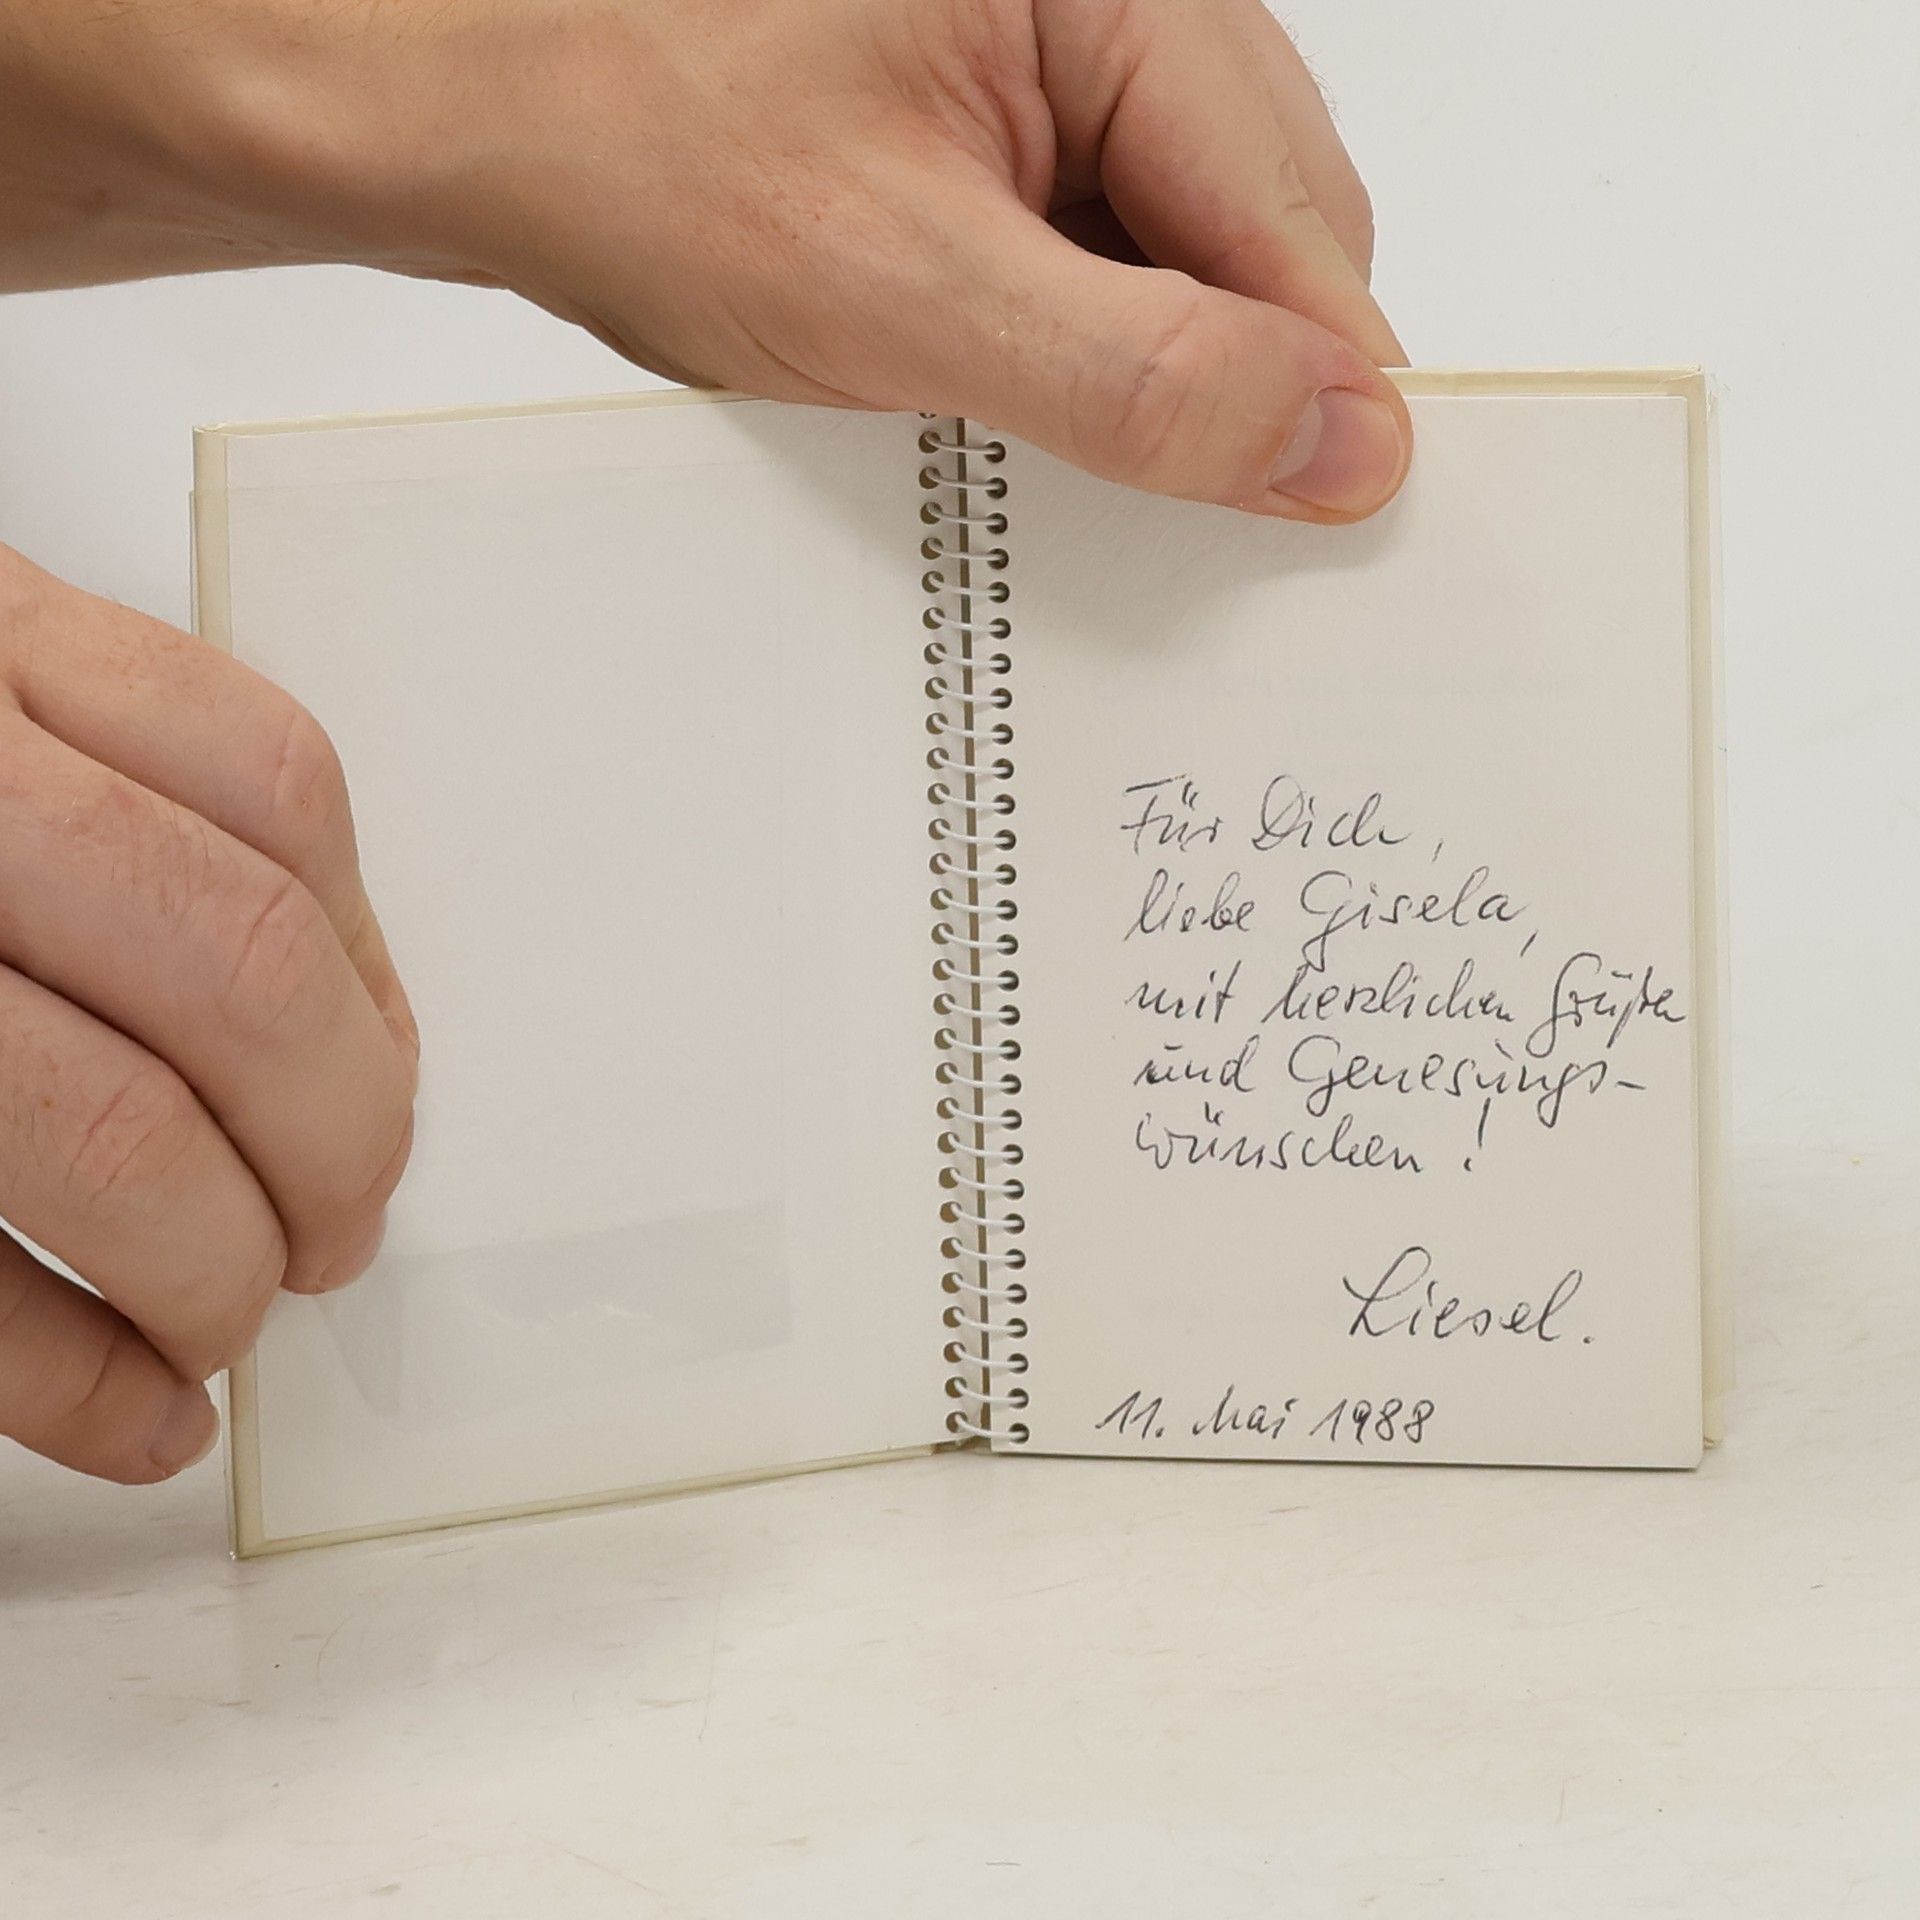 Für Dich,
liebe Gisela,
mit herzlichen Grüßen
und Genesungs-
wünschen!
Liesel.
11. Mai 1988